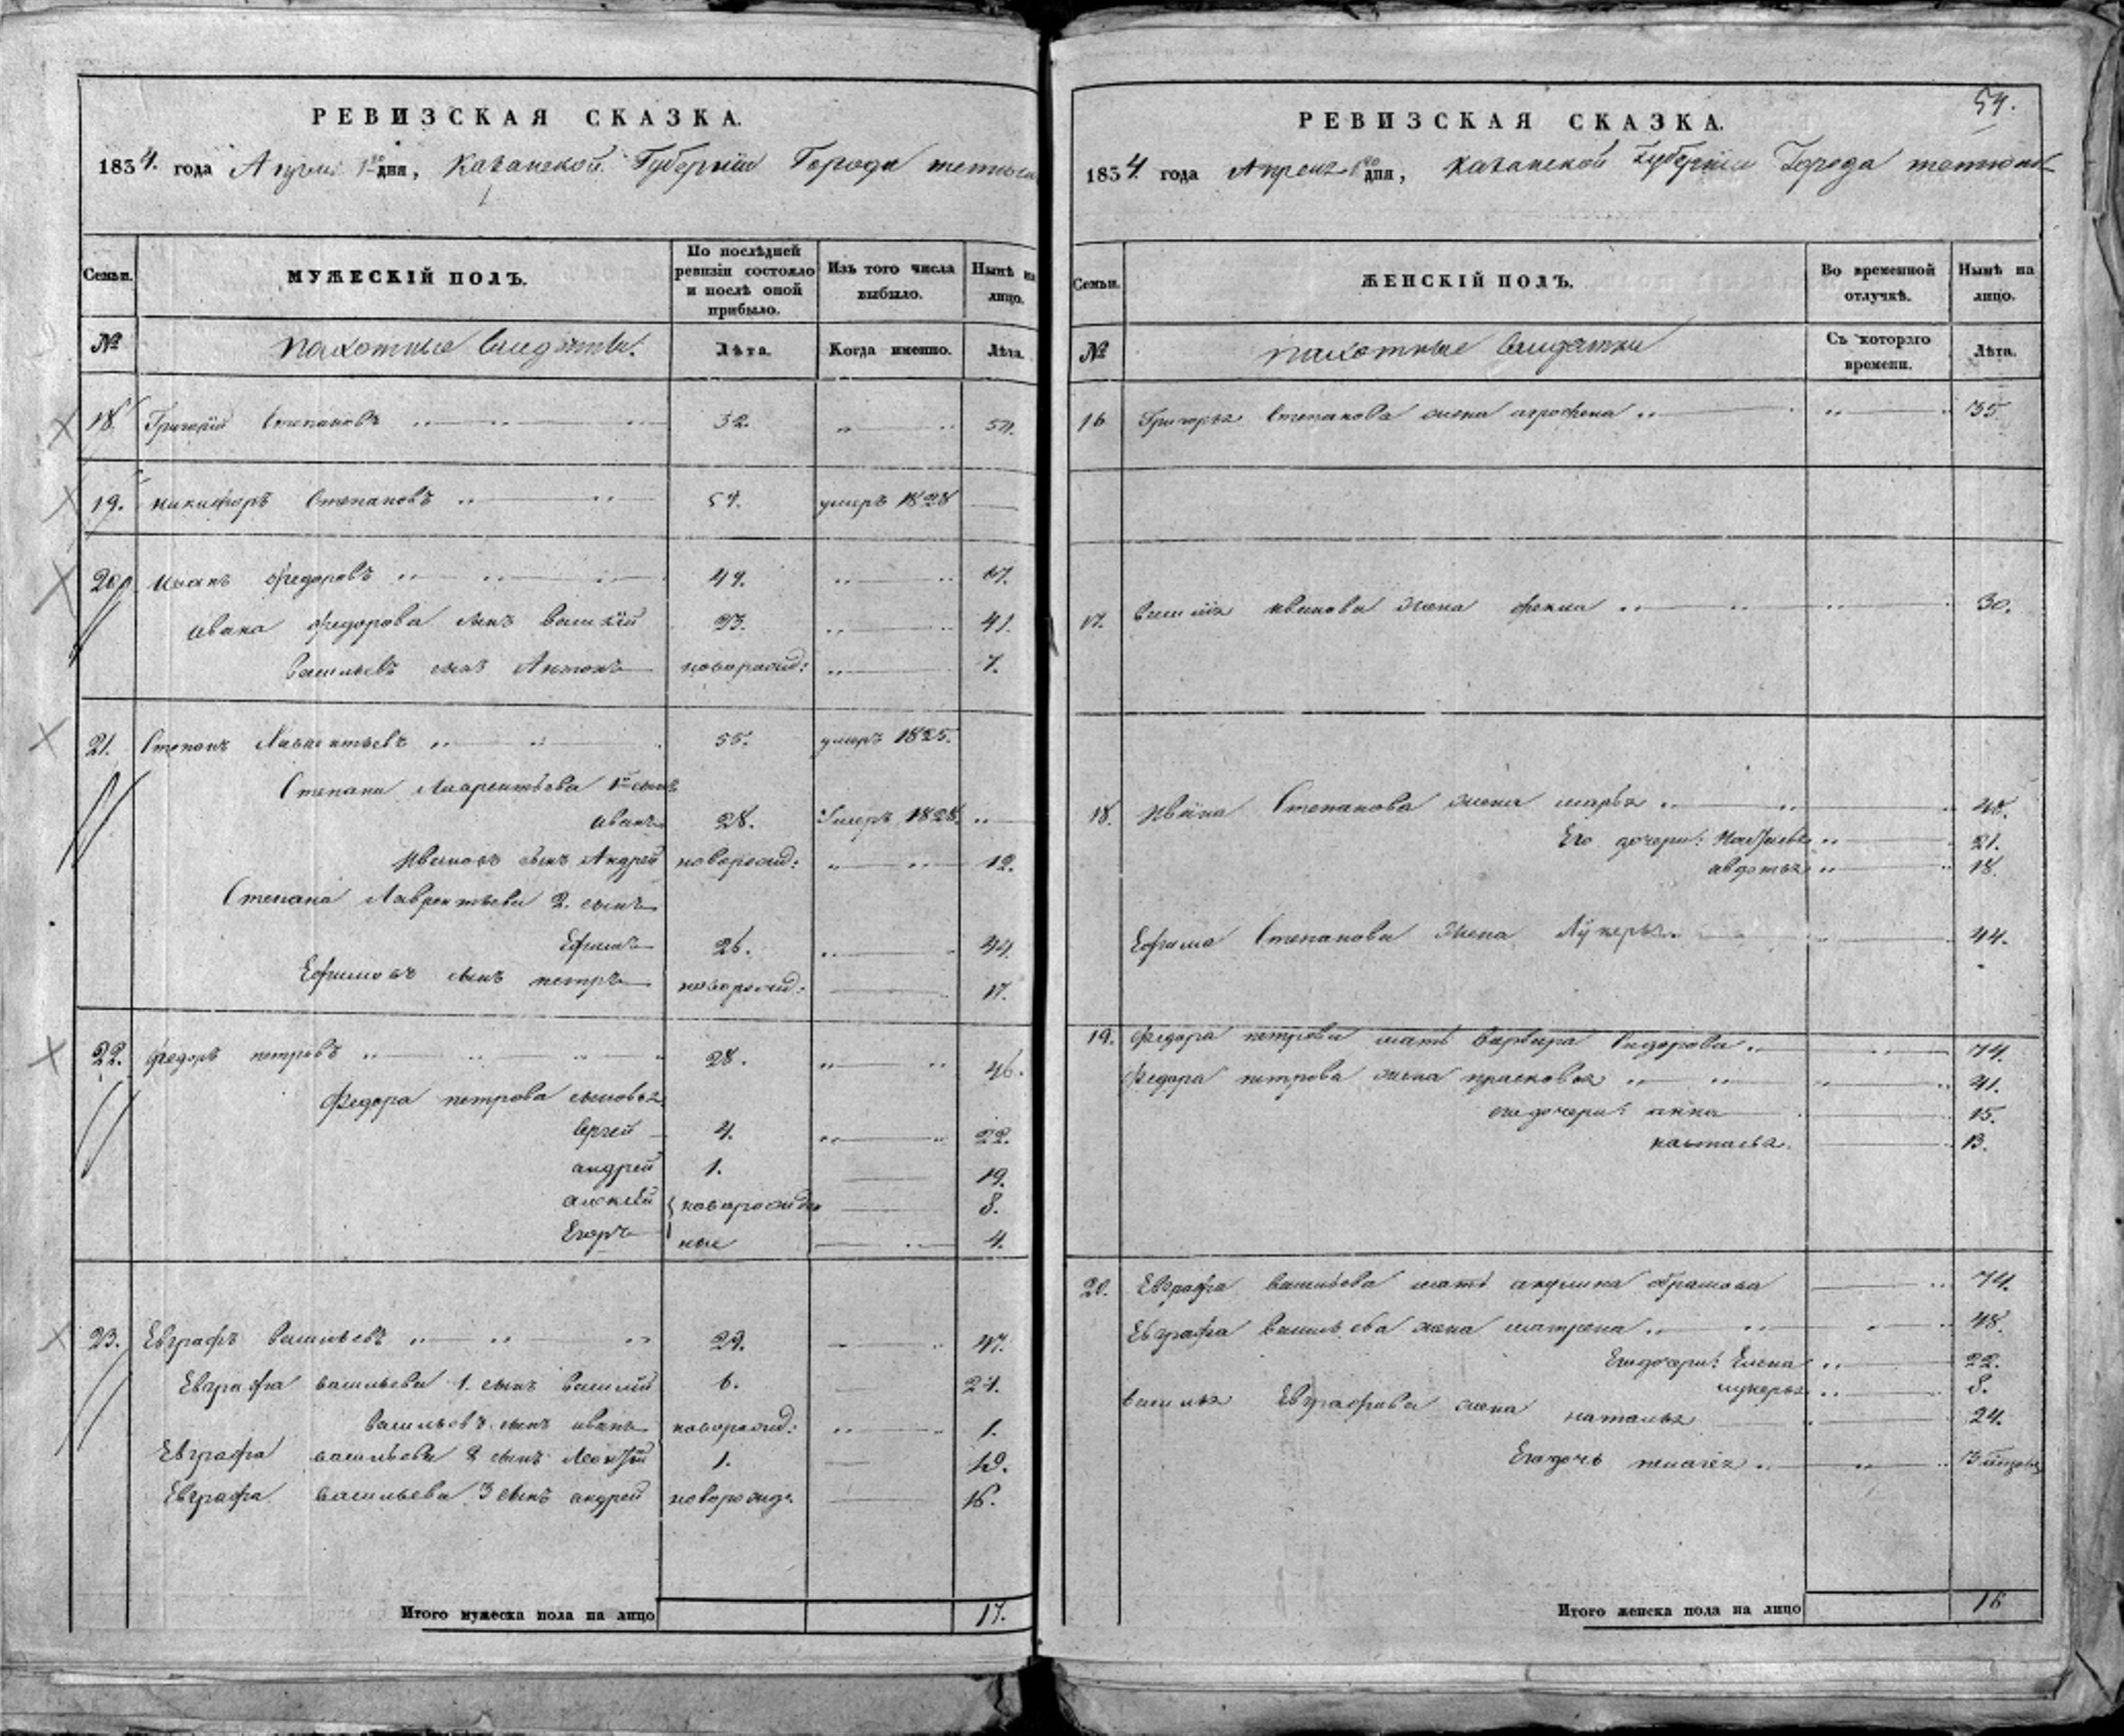 РЕВИЗСКАЯ СКАЗКА.
1834. года Апреля 1го дня, Казанской Губернии Города тетюш
Семьи.
МУЖЕСКІЙ ПОЛЪ.
По послѣдней ревизіи состояло и послѣ оной прибыло.
Изъ того числа выбыло.
Нынѣ на лицо.
№
пахотные
Лѣта.
Когда именно.
Лѣта.
18 Григорій Степановъ 32.
19. никифоръ Степановъ 57. умеръ 1828
20 Иванъ Федоровъ 49.
Ивана Федорова сынъ василій 23. 41.
Васильевъ сынъ Антонъ новорожд: 7.
21. Степанъ Лаврентьевъ 55. умеръ 1825.
Степана Лаврентьева 1й сынъ
иванъ 28. Умеръ 1828.
Ивановъ сынъ Андрей новорожд: 12.
Степана Лаврентьева 2. сынъ
Ефимъ 26. 44.
Ефимовъ сынъ петръ новорожд: 17.
22. Федоръ петровъ 28. 46.
Федора петрова сыновья
Сергей 4. 22.
андрей 1. 19.
алексей новорожден 8.
Егоръ ные 4.
23. Евграфъ Васильевъ 29. 47.
Евграфа васильева 1. сынъ Василій 6. 24.
Васильевъ сынъ иванъ новорожд: 1.
Евграфа васильева 2 сынъ Леонтій 1. 19.
Евграфа васильева 3 сынъ андрей новорожд. 16.
Итого мужеска пола на лицо 17.
РЕВИЗСКАЯ СКАЗКА.
54.
1834. года Апреля 1го дня, казанской Губернии Города тетюшь
Семьи.
ЖЕНСКІЙ ПОЛЪ.
Во временной отлучкѣ.
Нынѣ на лицо.
№
пахотные
Съ котораго времени.
Лѣта.
16 Григорья Степанова жена агрофена 35
17. Василія иванова жена фекла 30.
18. Ивана Степанова жена марья 48.
Его дочери: 21.
авдотья 18.
Ефима Степанова жена Лукерья 44.
19. Федора петрова мать варвара Сидорова 74.
Федора петрова жена прасковья 41.
ея дочери: анна 15.
настасья 13.
20. Евграфа васильева мать акулина абрамова 74.
Евграфа Васильева жена матрена 48.
Ея дочери: Елена 22.
лукерья 8.
василья Евграфова жена наталья 24.
Ея дочь пелагея 3
Итого женска пола на лицо 16